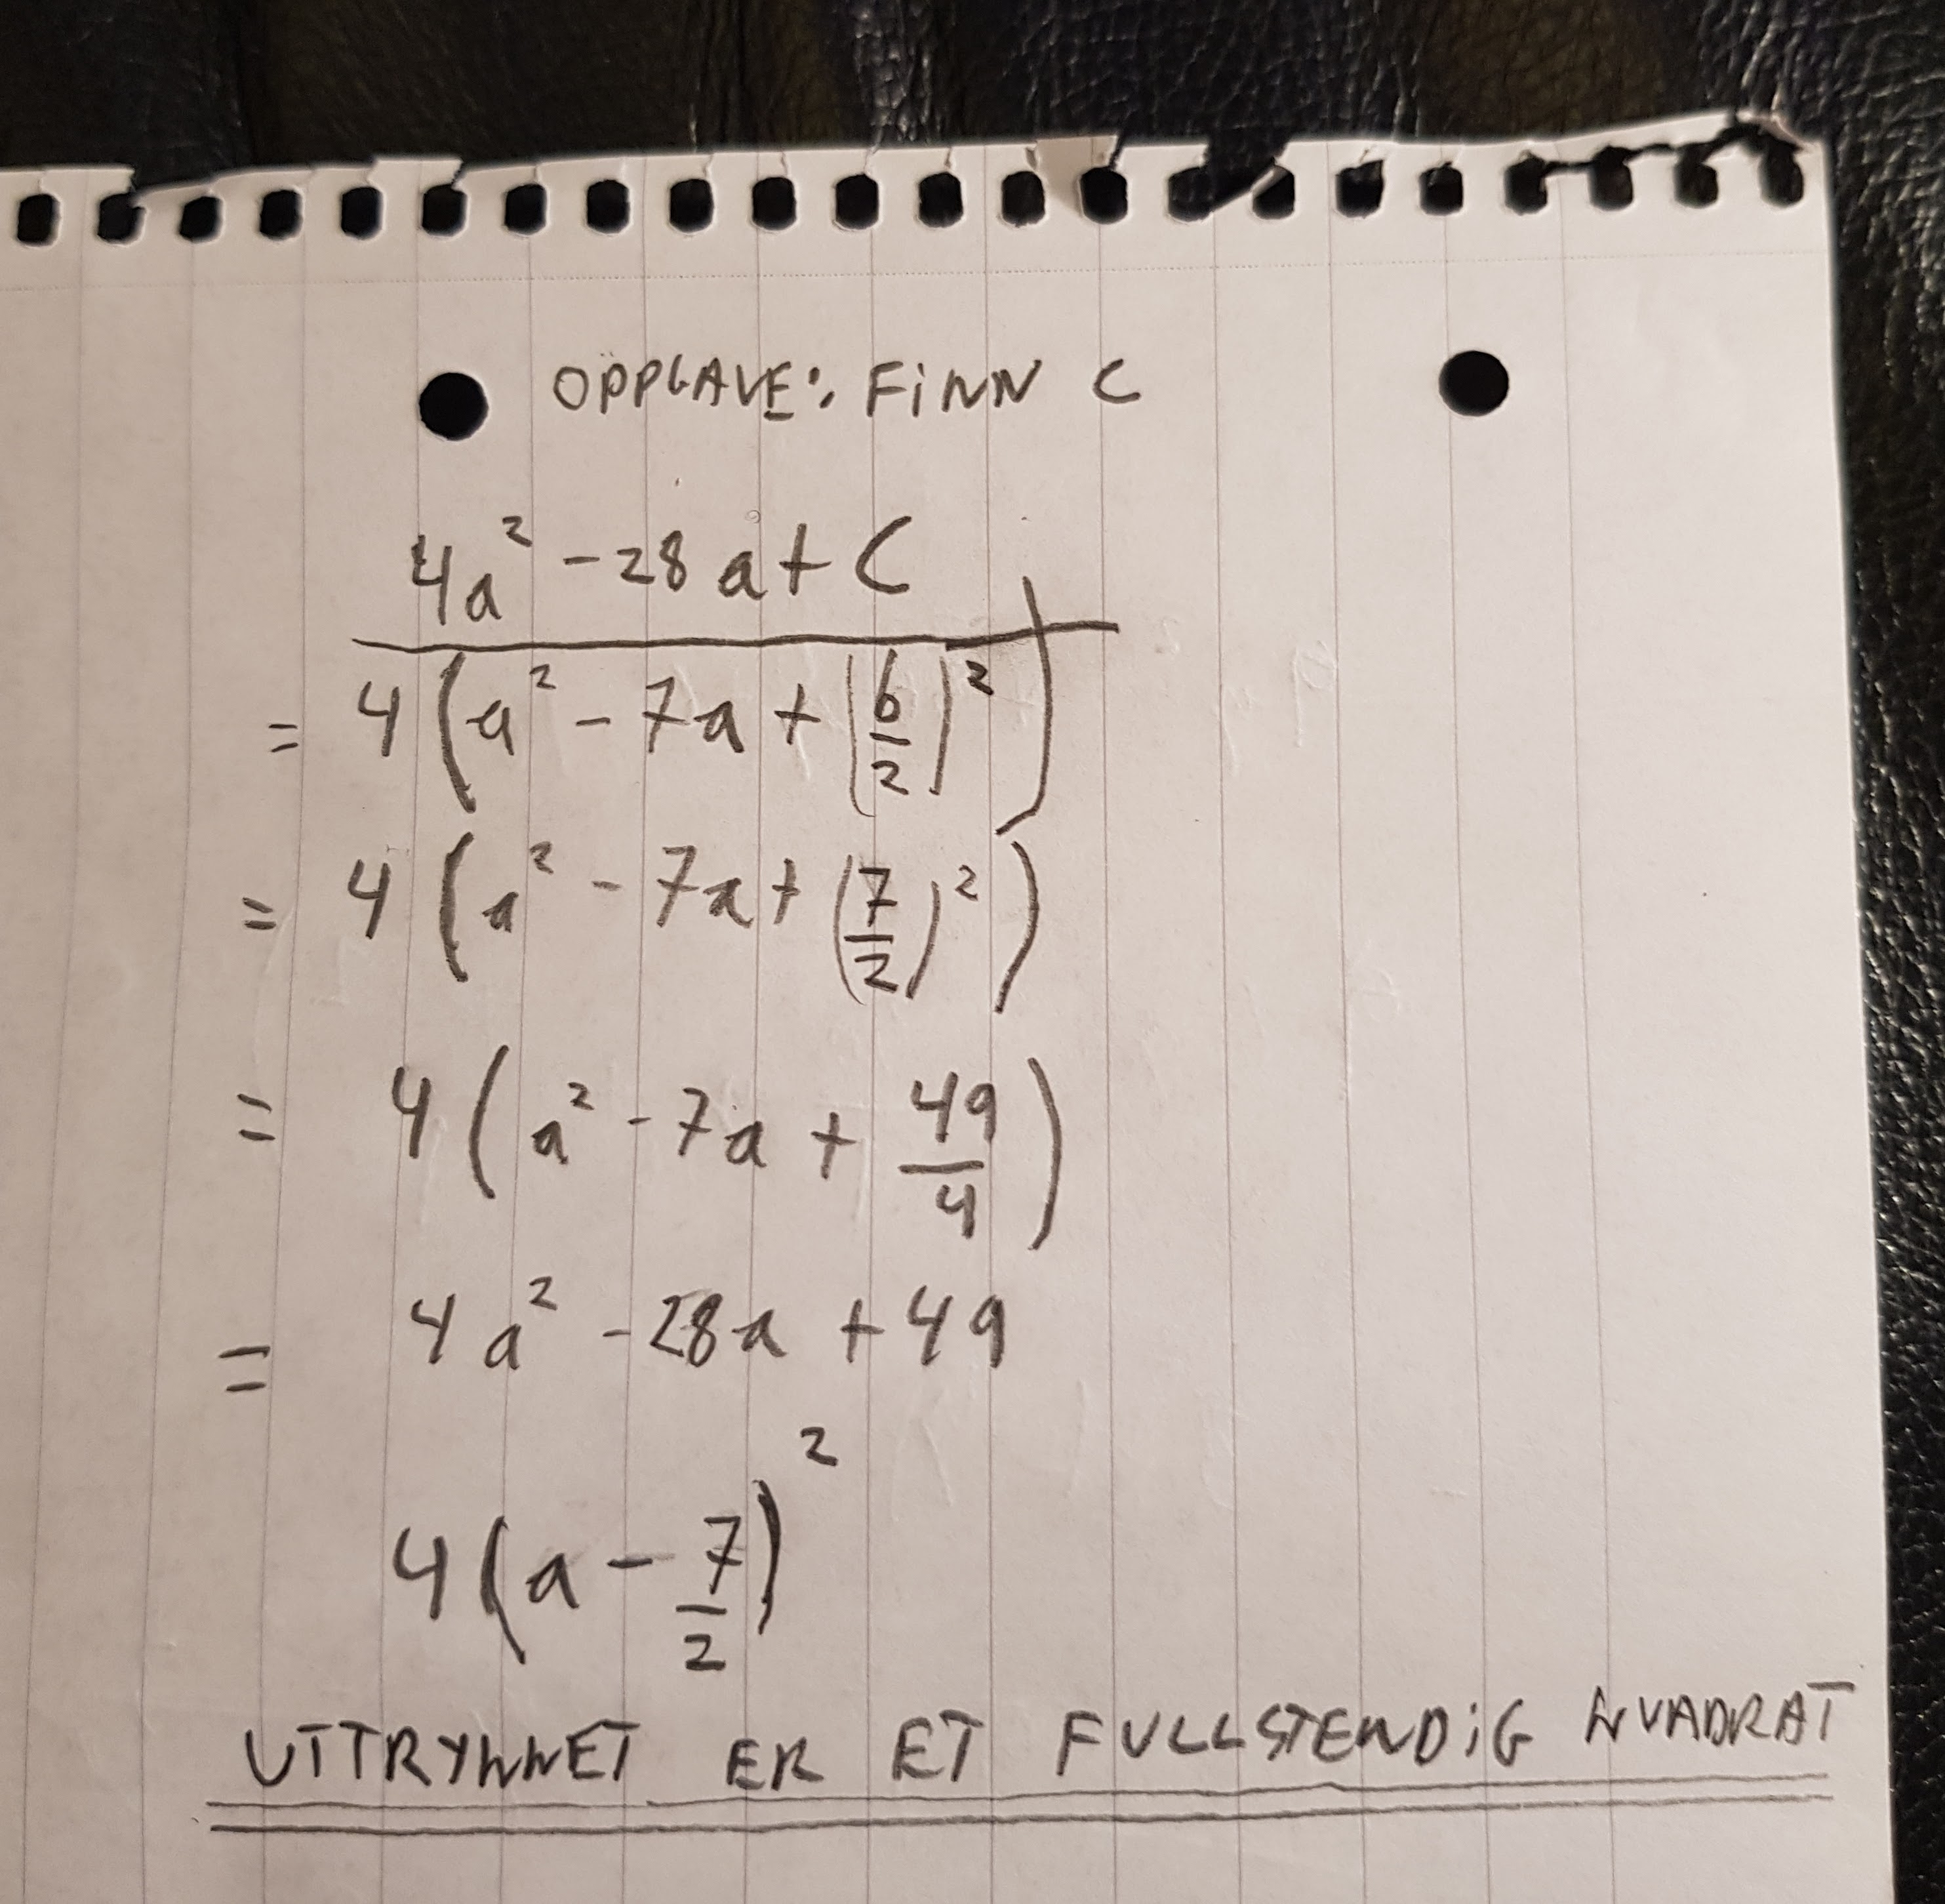 OPPGAVE: FINN C
4a² - 28a + C
= 4(a² - 7a + (b/2)²)
= 4(a² - 7a + (7/2)²)
= 4(a² - 7a + 49/4)
= 4a² - 28a + 49
4(a - 7/2)²
UTTRYKKET ER ET FULLSTENDIG KVADRAT